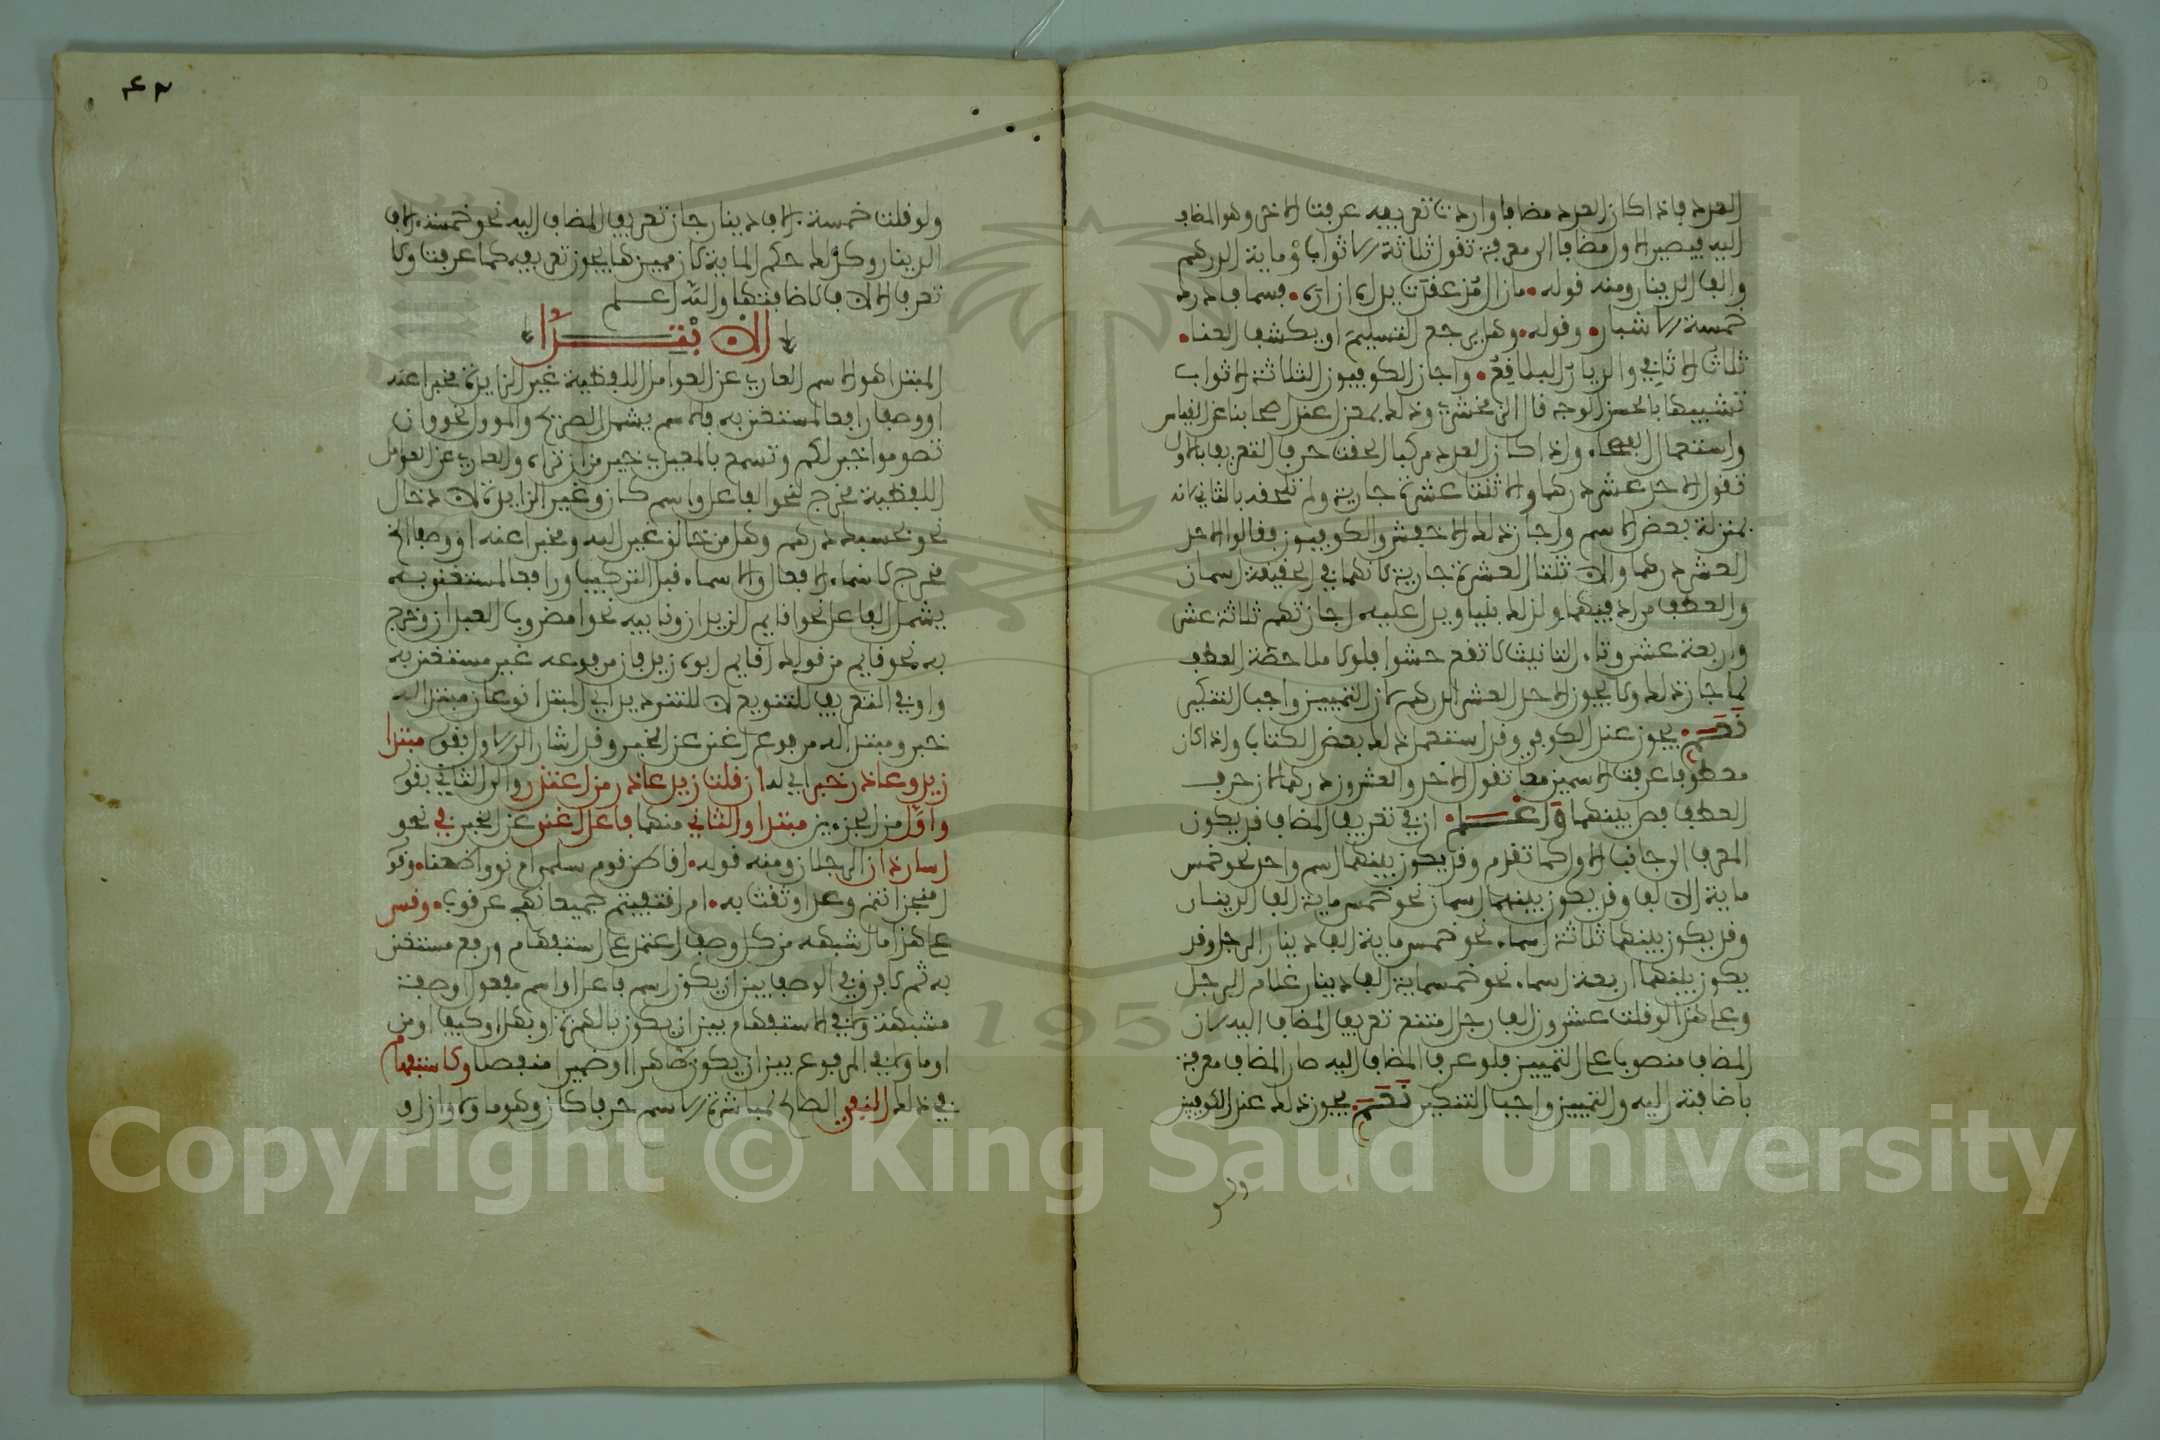 العدد فإذا كان العدد مضافا واردت تعريفه عرفت الاخر وهو المضاف
اليه فيصير الاول مضافا الى معرفة تقول ثلاثة الاثواب وماية الدرهم
والف الدينار ومنه قوله • مازال مذ عقدت يداه ازاره • فسما فادرك
خمسة الاشبار • وقوله • وهل يرجع التسليم او يكشف العنا •
ثلاث الاثافي والديار البلاقع • واجاز الكوفيون الثلاثة الاثواب
تشبيها بالحسن الوجه قال الزمخشري وذلك بمعزل عند اصحابنا عن القياس
واستعمال الفصحاء واذا كان العدد مركبا الحقت حرف التعريف بالاول
تقول الاحد عشر درهما والاثنتا عشرة جارية ولم تلحقه بالثاني لانه
بمنزلة بعض الاسم واجاز ذلك الاخفش والكوفيون فقالوا الاحد
العشر درهما والاثنتا العشرة جارية لانهما في الحقيقة اسمان
والعطف مراد فيهما ولذلك بنيا ويدل عليه اجازتهم ثلاثة عشر
واربعة عشر وتاء التانيث لا تقع حشوا فلولا ملاحظة العطف
لما جاز ذلك ولا يجوز الاحد العشر الدرهم لان التمييز واجب التنكير
نعم • يجوز عند الكوفي وقد استعمل ذلك بعض الكتاب واذا كان
معطوفا عرفت الاسمين معا تقول الاحد والعشرون درهما لان حرف
العطف فصل بينهما واعلم • ان في تعريف المضاف قد يكون
المعرف الى جانب الاول كما تقدم وقد يكون بينهما اسم واحد نحو خمس
ماية الالف وقد يكون بينهما اسمان نحو خمس ماية الف الدينار
وقد يكون بينهما ثلاثة اسماء نحو خمس ماية الف دينار الرجل وقد
يكون بينهما اربعة اسماء نحو خمسماية الف دينار غلام الرجل
وعلى هذا لو قلت عشرون الف رجل امتنع تعريف المضاف اليه لان
المضاف منصوبا على التمييز فلو عرف المضاف اليه صار المضاف معرفة
باضافته اليه والتمييز واجب التنكير نعم • يجوز ذلك عند الكوفيين
ولو
٤٣
ولو قلت خمسة الاف دينار جاز تعريف المضاف اليه نحو خمسة الاف
الدينار وكذلك حكم الماية لان مميزها يجوز تعريفه كما عرفت ولا
تعرف الالاف لاضافتها والله اعلم
الابتدا
المبتدا هو الاسم العاري عن العوامل اللفظية غير الزايدة مخبرا عنه
او وصفا رافعا لمستغنى به فالاسم يشمل الصريح والمؤول نحو وان
تصوموا خير لكم وتسمع بالمعيدي خير من ان تراه والعاري عن العوامل
اللفظية مخرج لنحو الفاعل واسم كان وغير الزايدة لادخال
نحو بحسبك درهم وهل من خالق غير الله ومخبرا عنه او وصفا الخ
مخرج لاسماء الافعال والاسماء قبل التركيب ورافعا لمستغنى به
يشمل الفاعل نحو اقايم الزيدان ونايبه نحو امضروب العبدان وخرج
به نحو قايم من قولك اقايم ابوه زيد فان مرفوعه غير مستغنى به
واو في التعريف للتنويع لا للترديد اي المبتدا نوعان مبتدا له
خبر ومبتدا له مرفوع اغنى عن الخبر وقد اشار الى الاول بقوله مبتدا
زيد وعاذر خبر اي له ان قلت زيد عاذر من اعتذر والى الثاني بقوله
واول من الجزءين مبتدا والثاني منهما فاعل اغنى عن الخبر في نحو
اسار ذان الرجلان ومنه قوله • اقاطن قوم سلمى ام نووا ظعنا • وقوله
امنجز انتم وعدا وثقت به • ام اقتفيتم جميعا نهج عرقوب • وقس
على هذا ما اشبهه من كل وصف اعتمد على استفهام ورفع مستغنى
به ثم لا فرق في الوصف بين ان يكون اسم فاعل او اسم مفعول او صفة
مشبهة ولا في الاستفهام بين ان يكون بالهمزة او بهل او كيف او من
او ما ولا في المرفوع بين ان يكون ظاهرا او ضميرا منفصلا وكاستفهام
في ذلك النفي الصالح لمباشرة الاسم حرفا كان وهو ما ولا وان او